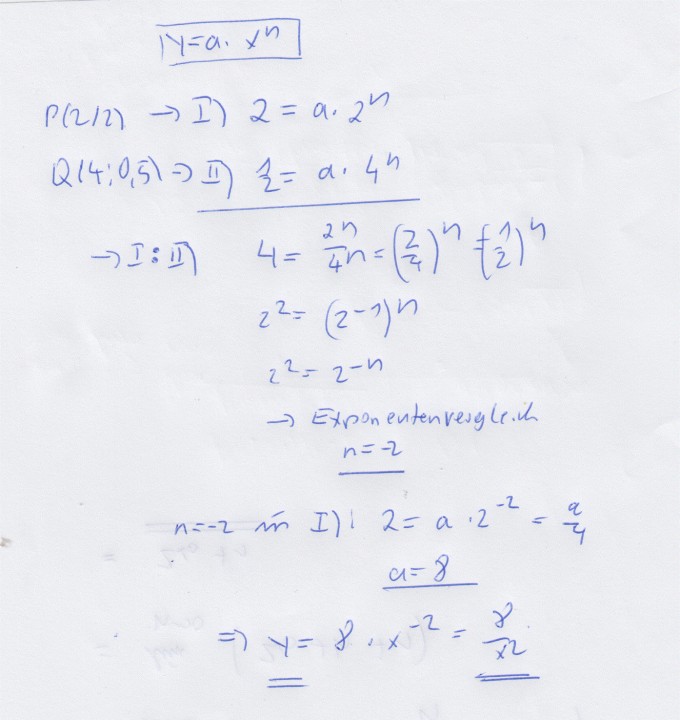 y = a · xⁿ
P(2/2) → I) 2 = a · 2ⁿ
Q(4;0,5) → II) 1/2 = a · 4ⁿ
→ I : II) 4 = 2ⁿ/4ⁿ = (2/4)ⁿ = (1/2)ⁿ
2² = (2⁻¹)ⁿ
2² = 2⁻ⁿ
→ Exponentenvergleich
n = -2
n = -2 in I): 2 = a · 2⁻² = a/4
a = 8
⇒ y = 8 · x⁻² = 8/x²